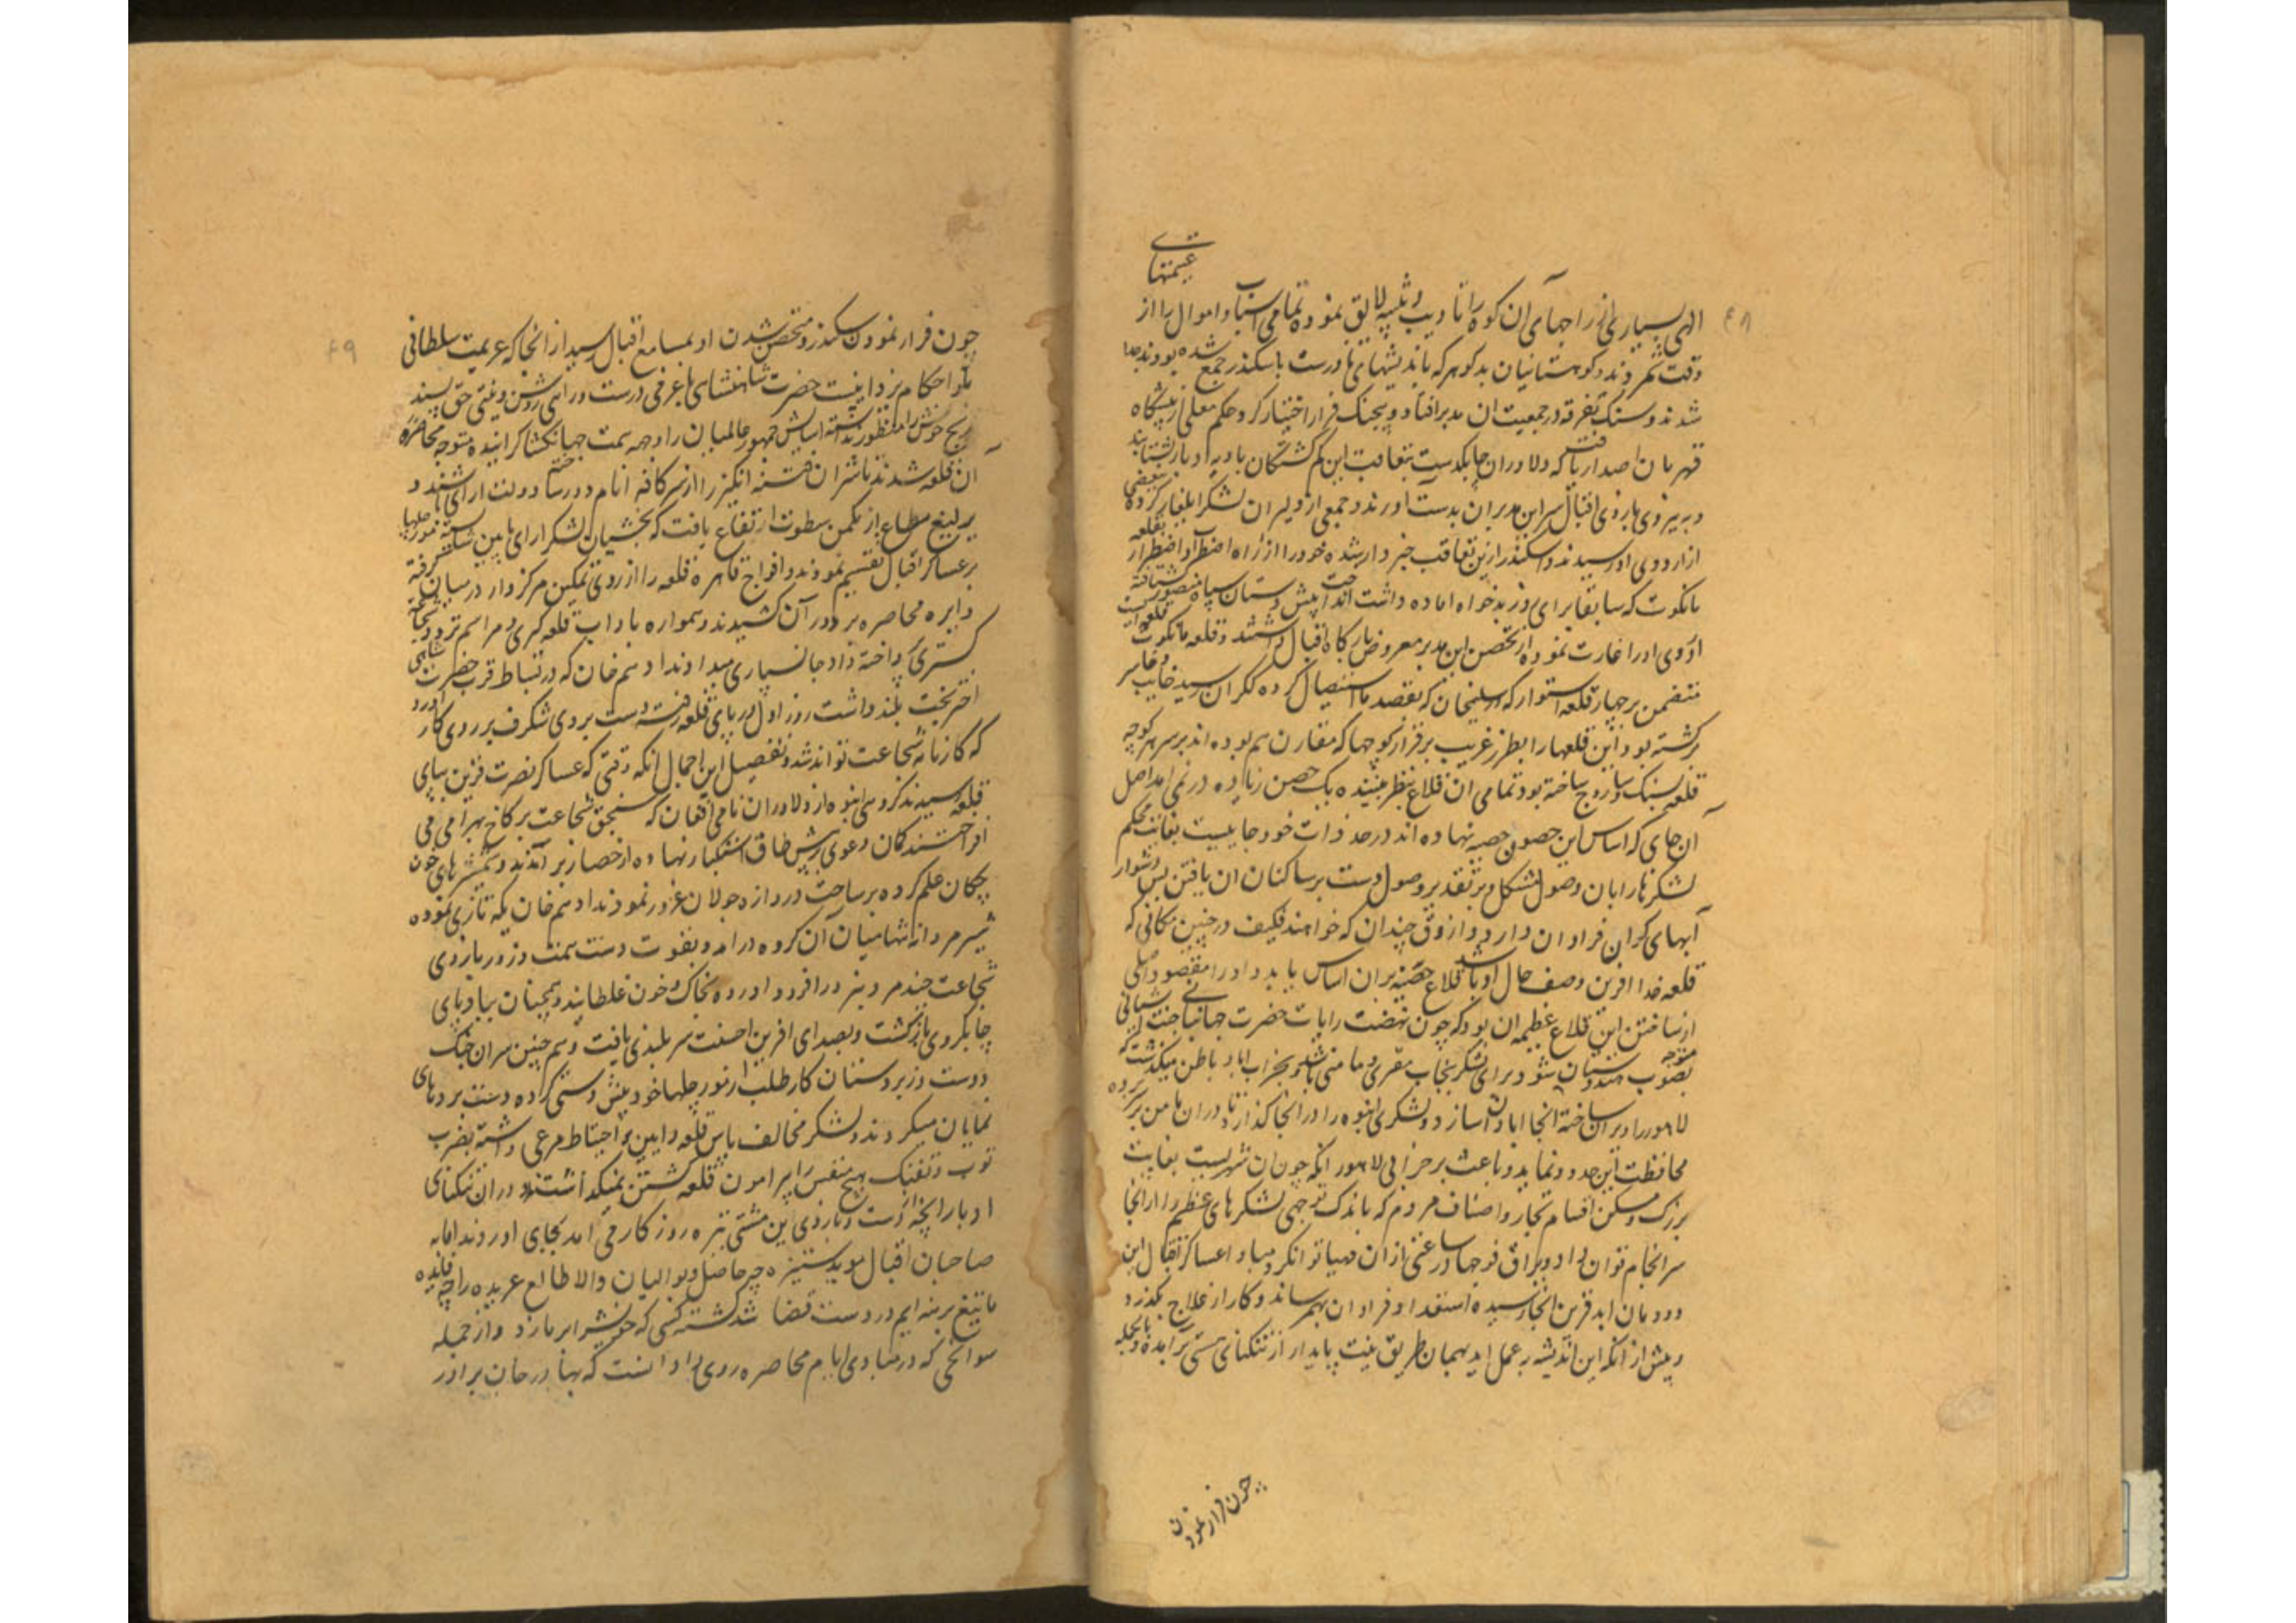 ۴۸
غنیمتهای
الهی بسیاری از راجهای آن کوه را تادیب و تنبیه لایق نموده تمامی اسباب و اموال را از
وقت شمردند و کوهستانیان بدکوهر که باندیشهای نادرست با سکندر جمع شده بودند جدا
شدند و سنک تفرقه در جمعیت ان مدبر افتاد و بیجنک فرار اختیار کرد حکم معلی از پیشگاه
قهرمان اصدار یافت که دلاوران چابکدست بتعاقب این کم کشتگان بادیه ادبار بشتابند
و به نیروی بازوی اقبال سر این مدبران بدست اورند و جمعی از دلیران لشکر ایلغار کرده ببعضی
از اردوی او رسیدند و اسکندر ازین تعاقب خبردار شده خود را از راه اضطراب و اضطرار بقلعه
مانکوت که سابقا برای روز بد خواه اماده داشت انداخت پیش دستان سپاه منصور شتافته
اردوی او را غارت نموده از تحصن این مدبر معروض بارکاه اقبال داشتند و قلعه مانکوت قلعه ایست
متضمن بر چهار قلعه استوار که سلیمخان که بقصد استیصال کرده ککران رسید خایب و خاسر
برکشته بود این قلعها را بطرز غریب بر فراز کوچها که مقارن هم بوده اند بر سر هر کوچه
قلعه بسنک و ساروج ساخته بود تمامی ان قلاع بنظر بیننده یک حصن زیاده در نمی امد اصل
آن جای که اساس این حصون حصینه نهاده اند در حد ذات خود جاییست بغایت محکم
لشکرها را بان وصول مشکل و بر تقدیر وصول دست بر ساکنان ان یافتن بس دشوار
آبهای کران فراوان دارد و ازوق چندان که خواهند فکیف در چنین مکانی که
قلعه خدا افرین وصف حال او باشد قلاع حصینه بران اساس یابد و او را مقصود اصلی
از ساختن این قلاع عظیمه ان بود که چون نهضت رایات حضرت جهانبانی جنت اشیانی
بصوب هندوستان متوجه شود برای لشکر پنجاب مقری و مامنی باشد و بخراب اباد باطن میکذشت که
لاهور را ویران ساخته انجا ابادان سازد و لشکری انبوه را در انجا کذارد تا دران مامن برده
محافظت این حدود نماید و باعث بر خرابی لاهور انکه چون ان شهریست بغایت
بزرک و مسکن اقسام تجار و اصناف مردم که باندک توجهی لشکرهای عظیم را از انجا
سرانجام توان داد و یراق فوجها در ساعتی از ان مهیا توان کرد مبادا عساکر اقبال این
دودمان ابد قرین انجا رسیده استعداد فراوان بهم رساند و کار از علاج بکذرد
و پیش از انکه این اندیشه به عمل اید بهمان طریق نیت پایدار از تنکنای هستی برامده و بالجمله
چون فرار نمودن
۴۹
چون فرار نمودن سکندر و متحصن شدن او بمسامع اقبال رسید از انجا که عزیمت سلطانی
تلو احکام یزدانیست حضرت شاهنشاهی با عزمی درست و رای روشن و نیتی حق پسند
رنج خویش را منظور نداشته اسایش جمهور عالمیان را وجهه همت جهانکشا کرانیده متوجه محاصره
ان قلعه شدند تا شر ان فتنه انکیز را از سر کافه انام دور ساخته دولت ارای باشند و
یرلیغ مطاع از مکمن سطوت ارتفاع یافت که بخشیان لشکر ارای بایین شایسته مورچلها
بر عساکر اقبال تقسیم نمودند و افواج قاهره قلعه را از روی تمکین مرکزوار درمیان کرفته
دایره محاصره بر دور آن کشیدند و همواره باداب قلعه کیری و مراسم تردد و شجاعت
کستری پرداخته داد جانسپاری میدادند ادهم خان که در بساط قرب حضرت شاهی
اختر بخت بلند داشت روز اول در پای قلعه رفته دست بردی شکرف بر روی کار اورد
که کارنامه شجاعت تواند شد و تفصیل این اجمال انکه وقتی که عساکر نصرت قرین بپای
قلعه رسیدند کروهی انبوه از دلاوران نامی افغان که سنجق شجاعت بر کاخ بهرامی می
افراختند کان دعوی بر پیش طاق استکبار نهاده از حصار بر آمدند و شمشیرهای خون
چکان علم کرده بر ساحت دروازه جولان غرور نمودند ادهم خان یکه تازی نموده
شیر مردانه شامیان آن کروه در امد و بقوت دست همت و زور بازوی
شجاعت چند مرد نبرد را فرود اورده بخاک و خون غلطانید و همچنان بباد پای
چابکروی باز کشت و بصدای افرین احسنت سر بلندی یافت و هم چنین سران جنک
دوست و زبردستان کار طلب از مورچلها خود پیش دستی کرده دست بردهای
نمایان میکردند و لشکر مخالف پاس قلعه و ایین احتیاط مرعی داشته بضرب
توپ و تفنک هیچ متنفس را پیرامون قلعه کشتن نمیکذاشتند و دران تنکنای
ادبار انچه از دست و بازوی این مشتی تیره روزکار می امد بجای اوردند اما با
صاحبان اقبال موید ستیزه چه حاصل و با والیان والا طالع عربده را چه فایده
ما تیغ برهنه ایم در دست قضا شد کشته کسی که خویش را بر ما زد و از جمله
سوانحی که در مبادی ایام محاصره روی داد انست که بهادر خان برادر